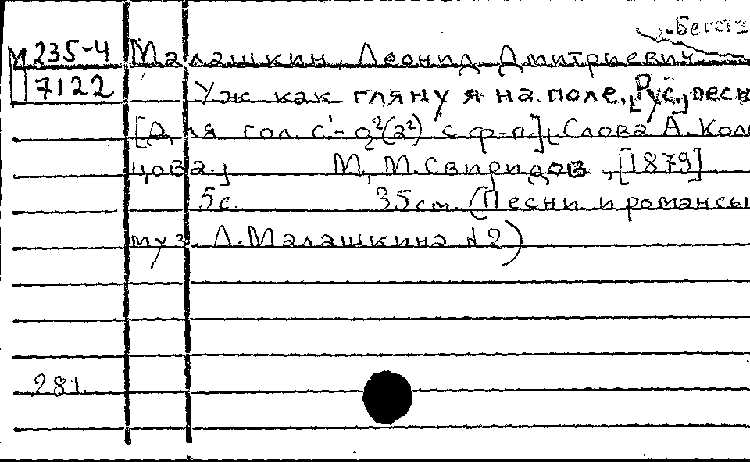 М 235-4 Малашкин, Леонид Дмитриевич
7122 Уж как гляну я на поле. [Рус.] песн
[Для гол. c¹- g²(a²) с ф-п.] [Слова А. Коль
цова.] М., М. Свиридов, [1879]
5с. 35см. (Песни и романсы
муз. Л. Малашкина №2)
281